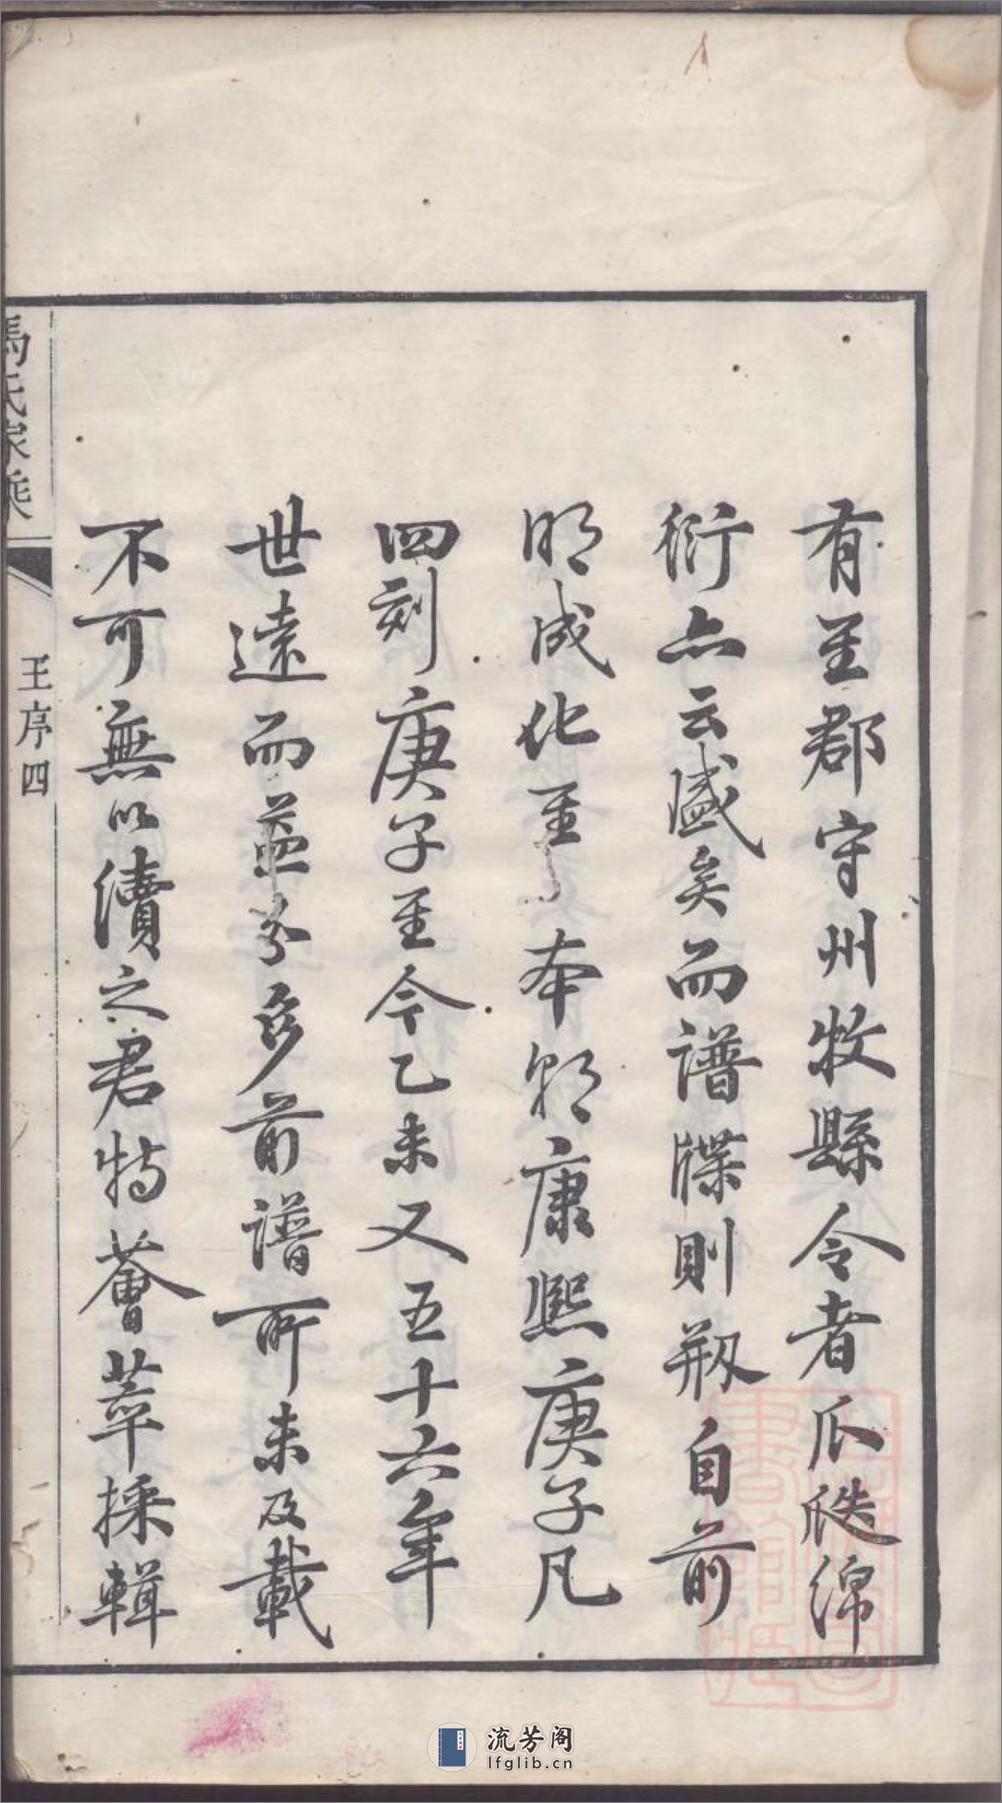 有至郡守州牧縣令者瓜瓞綿
衍亦云盛矣而譜牒則刱自前
明成化至本朝康熙庚子凡
四刻庚子至今乙未又五十六年
世遠而益分多前譜所未及載
不可無以續之君特薈萃採輯
馮氏家乘
王序四
流芳阁
lfglib.cn